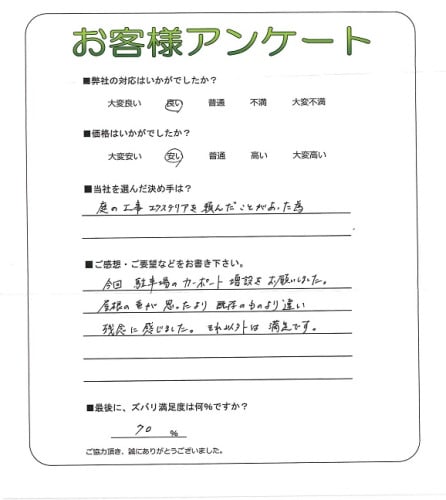 お客様アンケート
■弊社の対応はいかがでしたか?
大変良い 良い 普通 不満 大変不満
■価格はいかがでしたか?
大変安い 安い 普通 高い 大変高い
■当社を選んだ決め手は?
庭の工事エクステリアを頼んだことがあった為
■ご感想・ご要望などをお書き下さい。
今回 駐車場のカーポート増設をお願いしました。
屋根の色が思ったより既存のものより違い
残念に感じました。それ以外は満足です。
■最後に、ズバリ満足度は何%ですか?
70 %
ご協力頂き、誠にありがとうございました。